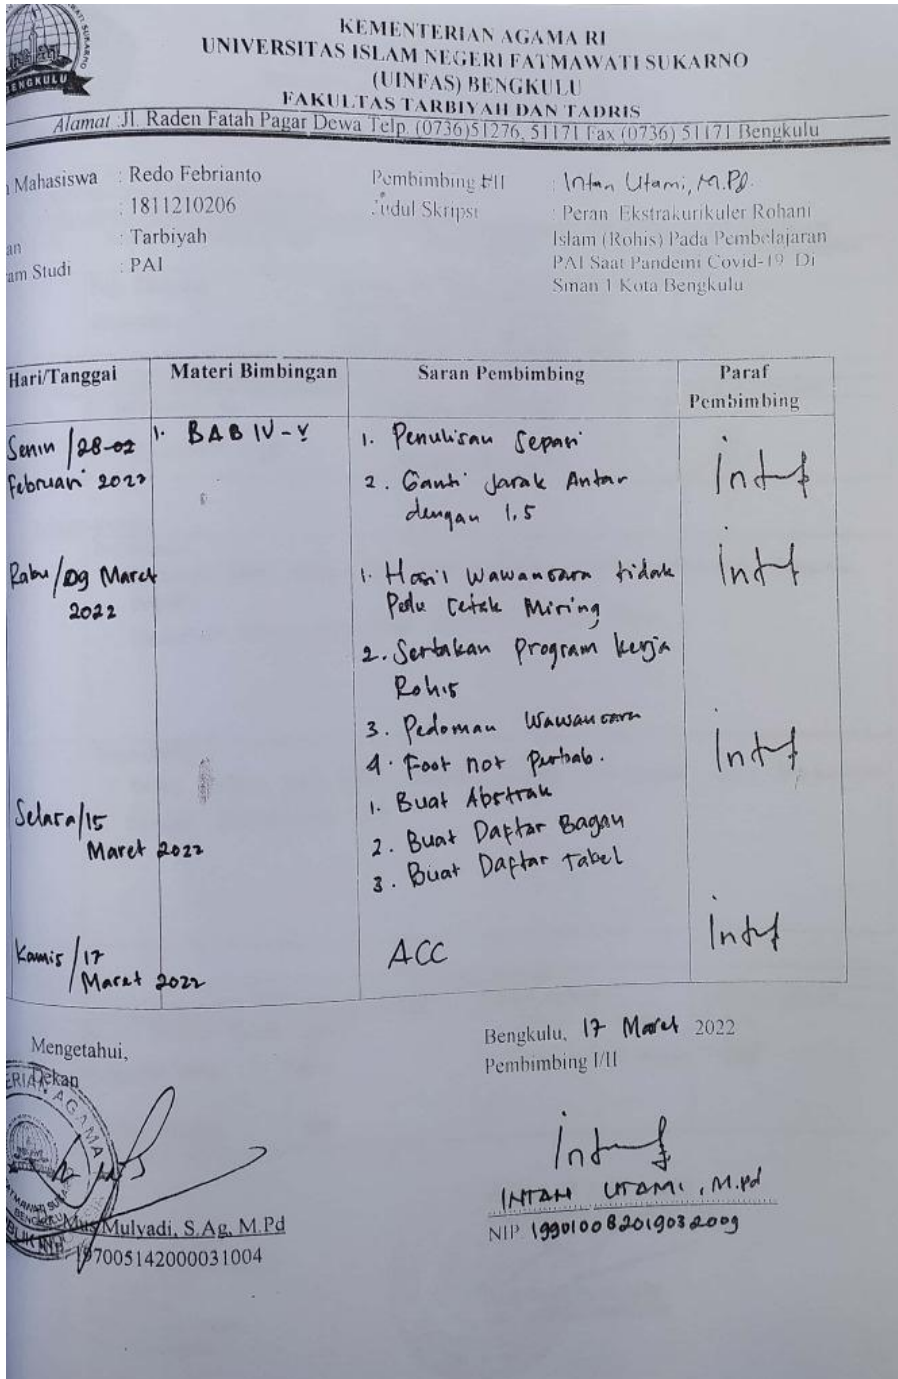 KEMENTERIAN AGAMA RI
UNIVERSITAS ISLAM NEGERI FATMAWATI SUKARNO
(UINFAS) BENGKULU
FAKULTAS TARBIYAH DAN TADRIS
Alamat :Jl. Raden Fatah Pagar Dewa Telp. (0736)51276, 51171 Fax (0736) 51171 Bengkulu
Mahasiswa : Redo Febrianto
: 1811210206
an : Tarbiyah
am Studi : PAI
Pembimbing I/II : Intan Utami, M.Pd.
Judul Skripsi : Peran Ekstrakurikuler Rohani
Islam (Rohis) Pada Pembelajaran
PAI Saat Pandemi Covid-19 Di
Sman 1 Kota Bengkulu
Hari/Tanggal Materi Bimbingan Saran Pembimbing Paraf
Pembimbing
Senin /28-02
Februari 2022
1. BAB IV - V
1. Penulisan
2. Ganti Jarak Antar
dengan 1.5
Rabu /09 Maret
2022
1. Hasil Wawancara tidak
Perlu Cetak Miring
2. Sertakan Program kerja
Rohis
3. Pedoman Wawancara
4. Foot not Perbab.
Selasa/15
Maret 2022
1. Buat Abstrak
2. Buat Daftar Bagan
3. Buat Daftar Tabel
Kamis /17
Maret 2022
ACC
Mengetahui,
Dekan
Mus Mulyadi, S.Ag, M.Pd
197005142000031004
Bengkulu, 17 Maret 2022
Pembimbing I/II
INTAN UTAMI, M.Pd
NIP. 199010082019032009